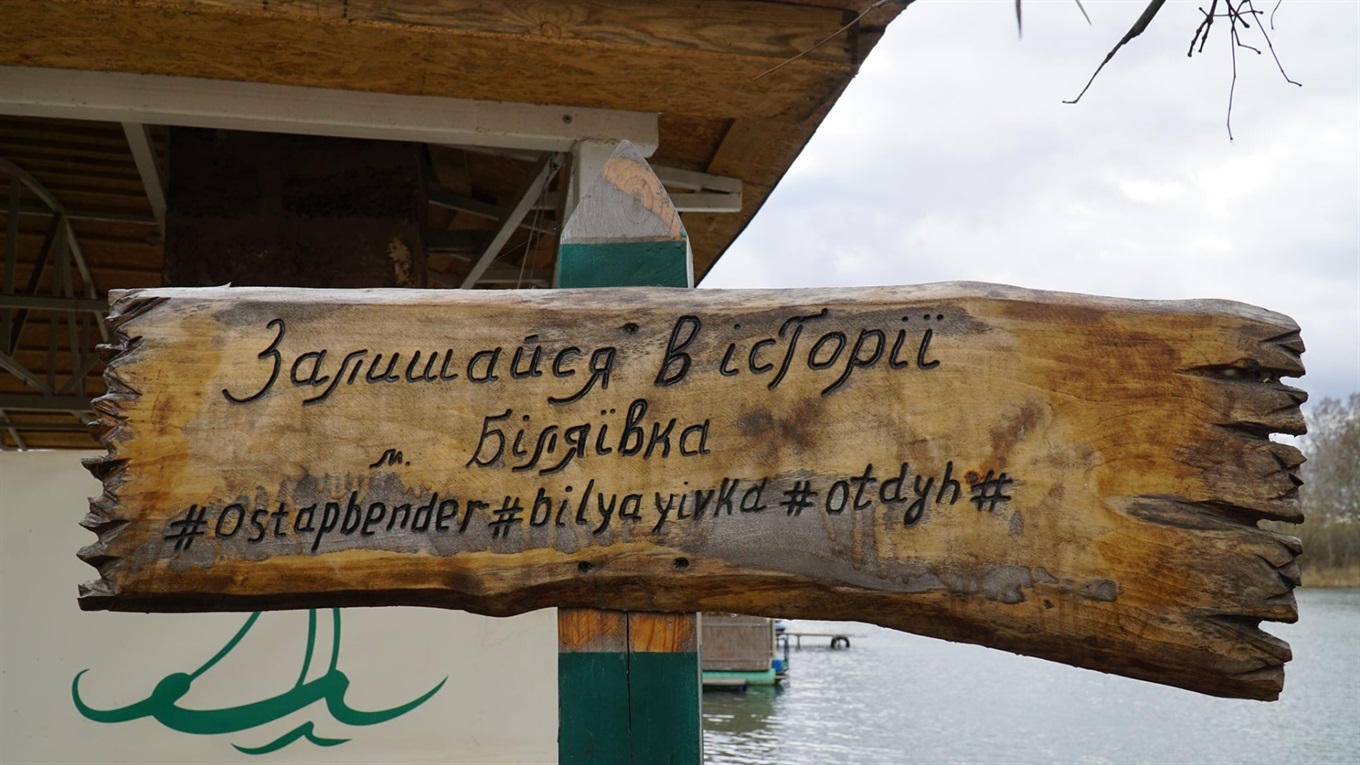 Залишайся в історії
м. Біляївка
#Ostapbender#bilyayivka#otdyh#